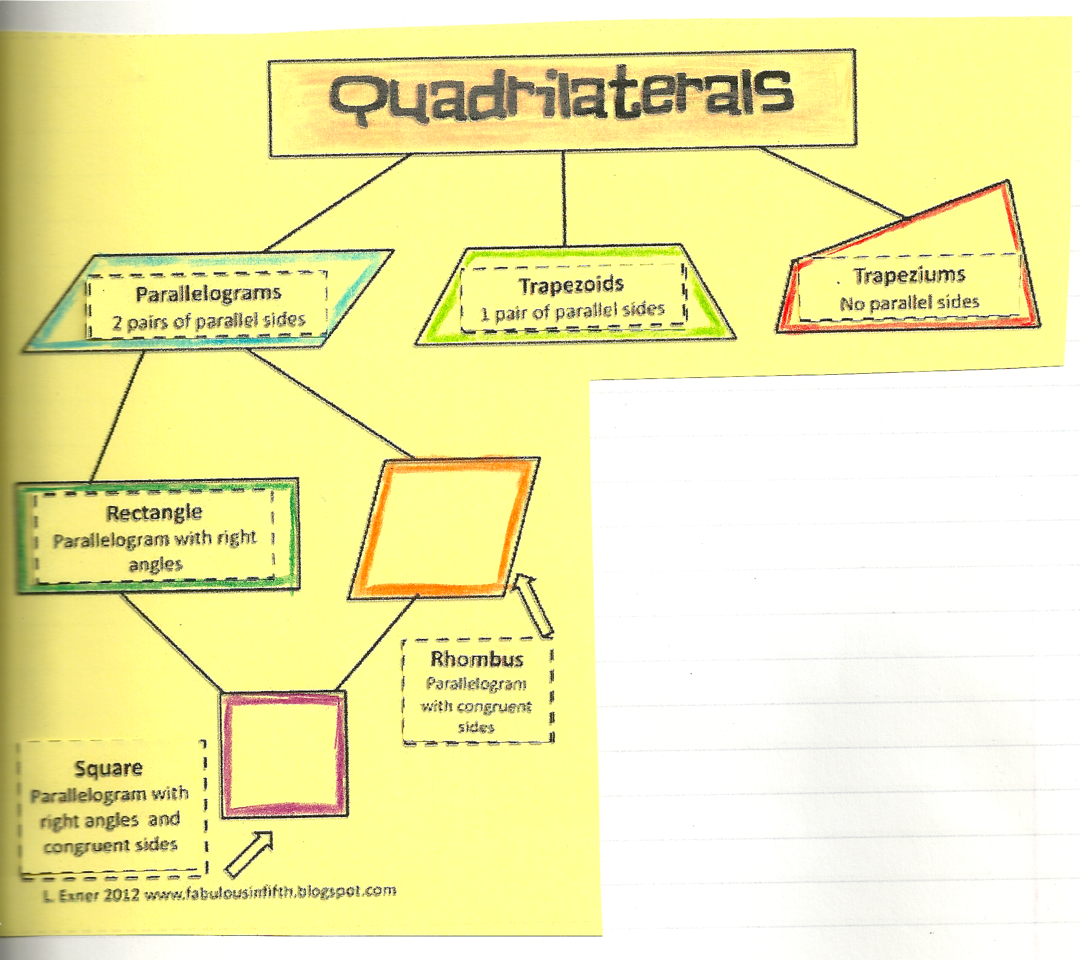 Quadrilaterals
Parallelograms
2 pairs of parallel sides
Trapezoids
1 pair of parallel sides
Trapeziums
No parallel sides
Rectangle
Parallelogram with right
angles
Rhombus
Parallelogram
with congruent
sides
Square
Parallelogram with
right angles and
congruent sides
L. Exner 2012 www.fabulousinfifth.blogspot.com